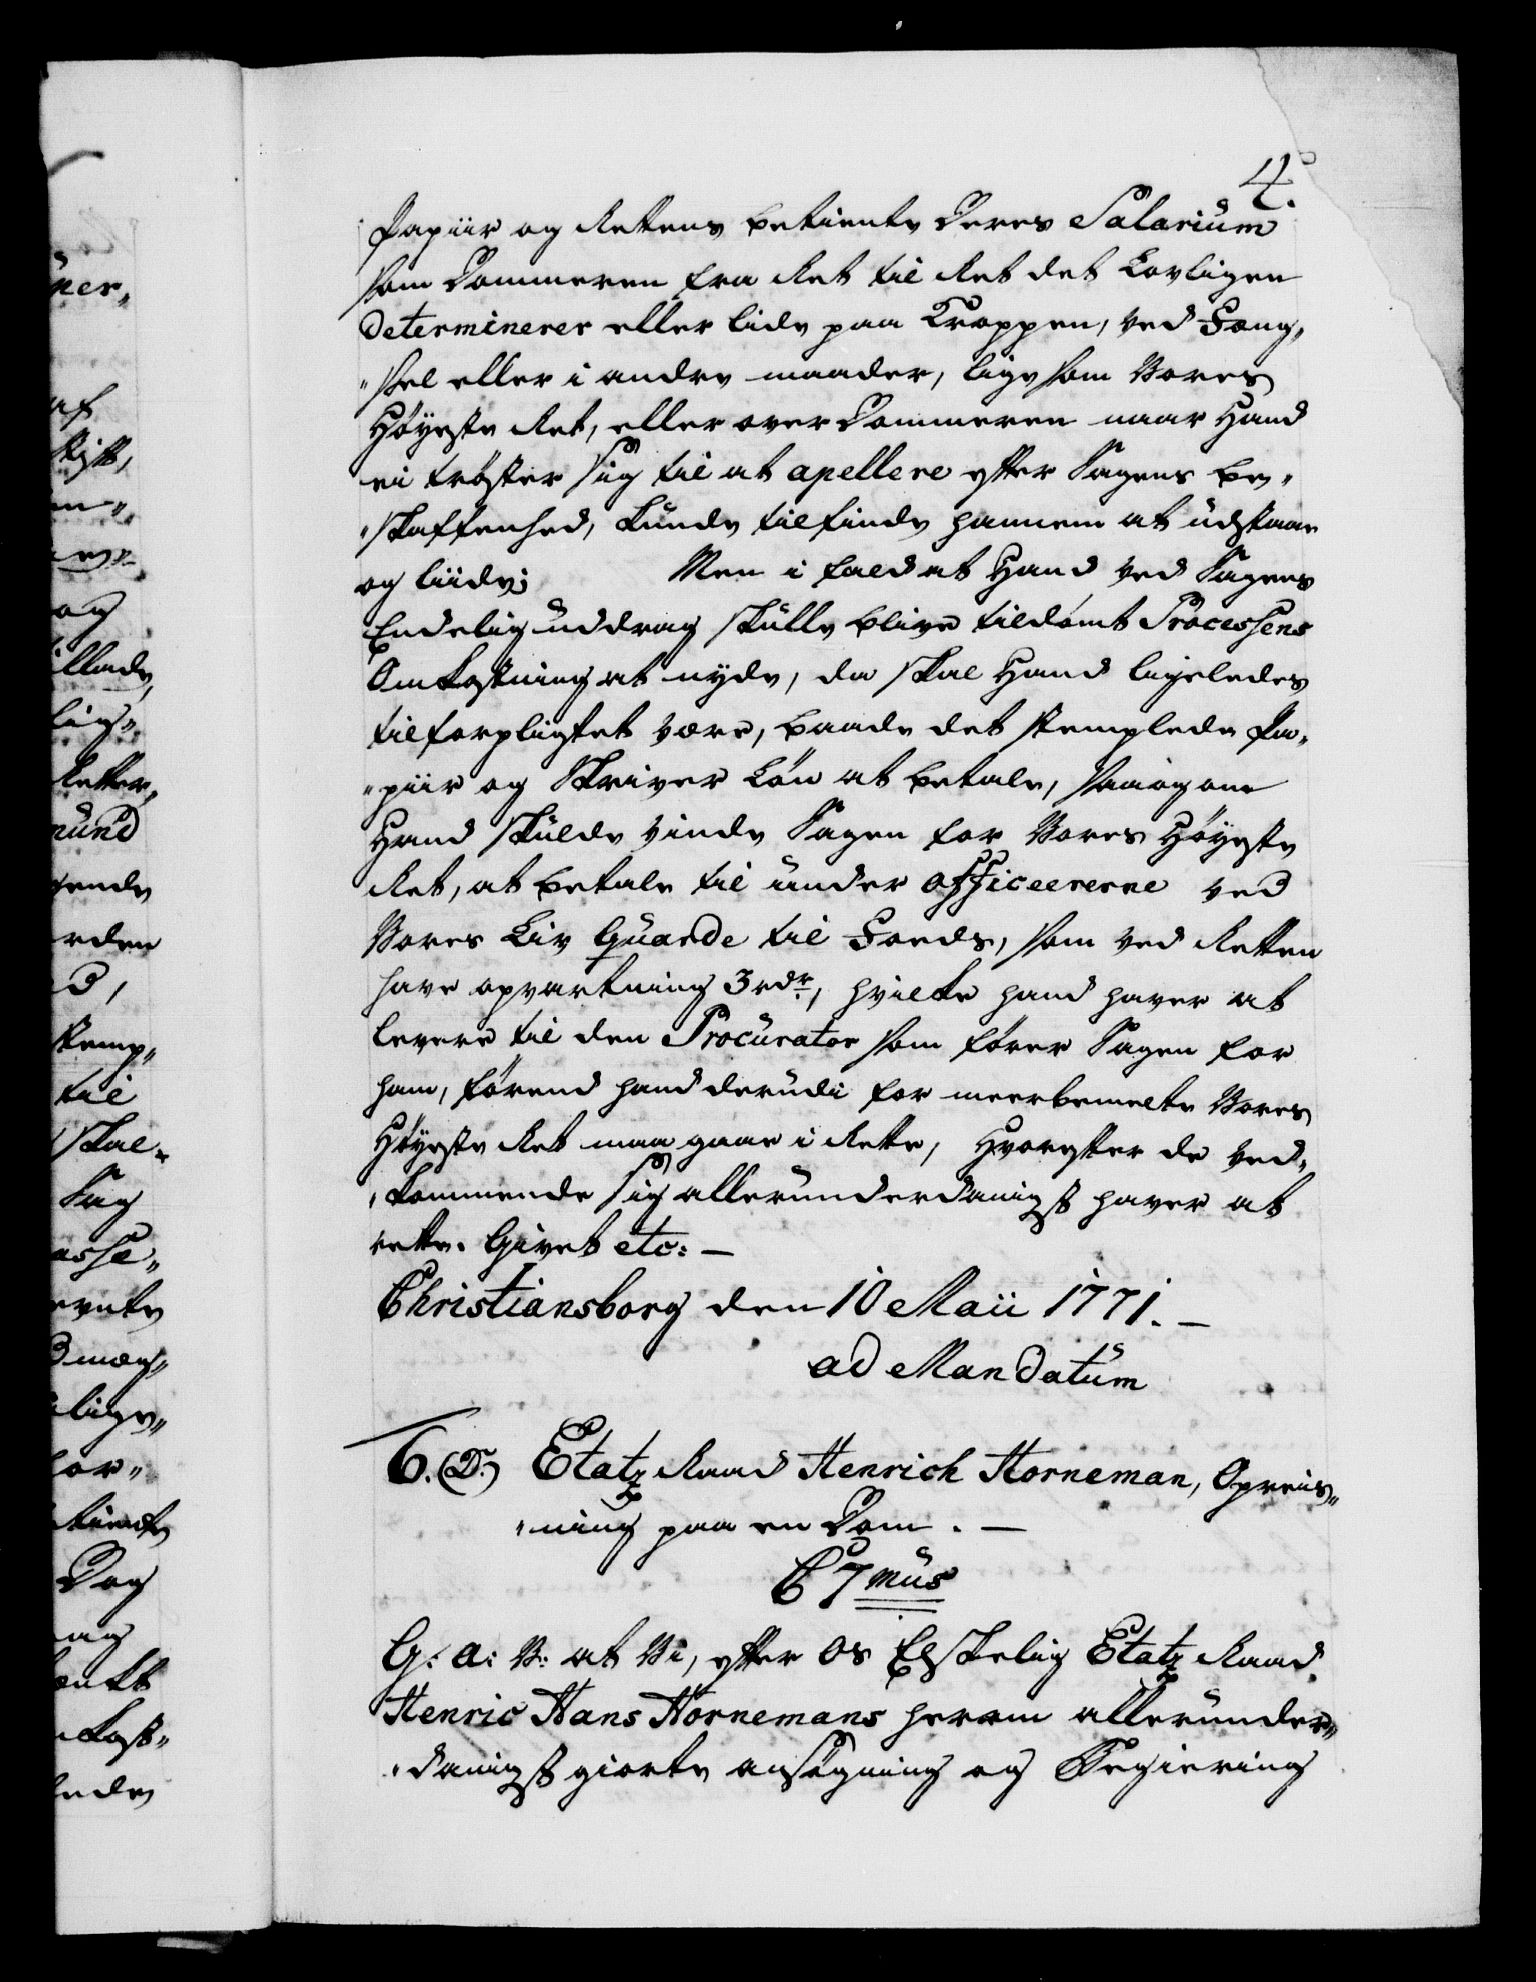 4.
Papiir og Rettens betiente Deres Salarium
som Dommeren fra Ret til Ret det Lovligen
Determinerer eller lide paa Kroppen, ved Fæng„
„sel eller i andre maader, lige som Vores
Høyeste Ret, eller over Dommeren naar Hand
ei trøster sig til at apellere efter Sagens be„
„skaffenhed, kunde tilfinde hannem at udstaae
og liide; Men i fald at Hand ved Sagens
Endelig uddrag skulle blive tildømt Processens
Omkostning at nyde, da skal Hand ligeledes
tilforpligtet være, baade det stemplede Pa„
„piir og Skriver Løn at betale, saa og om
Hand skulde vinde Sagen for Vores Høyeste
Ret, at betale til under officeererne ved
Vores Liv Guarde til Foeds, som ved Retten
have opvartning 3 rdr., hvilke hand haver at
levere til den Procurator som fører Sagen for
ham, førend hand derudi for meerbemelte Vores
Høyeste Ret maa gaae i Rette, Hvorefter de ved„
„kommende sig allerunderdanigst haver at
rette. Givet etc: —
Christiansborg den 10 Maii 1771. —
ad Mandatum
6. (D.) Etatz Raad Henrich Horneman, Opreis„
„ning paa en Dom. —
C 7mus
G: A: V: at Vi, efter Os Elskelig Etatz Raad
Henric Hans Hornemans herom allerunder„
„danigst giorte ansøgning og Begiering